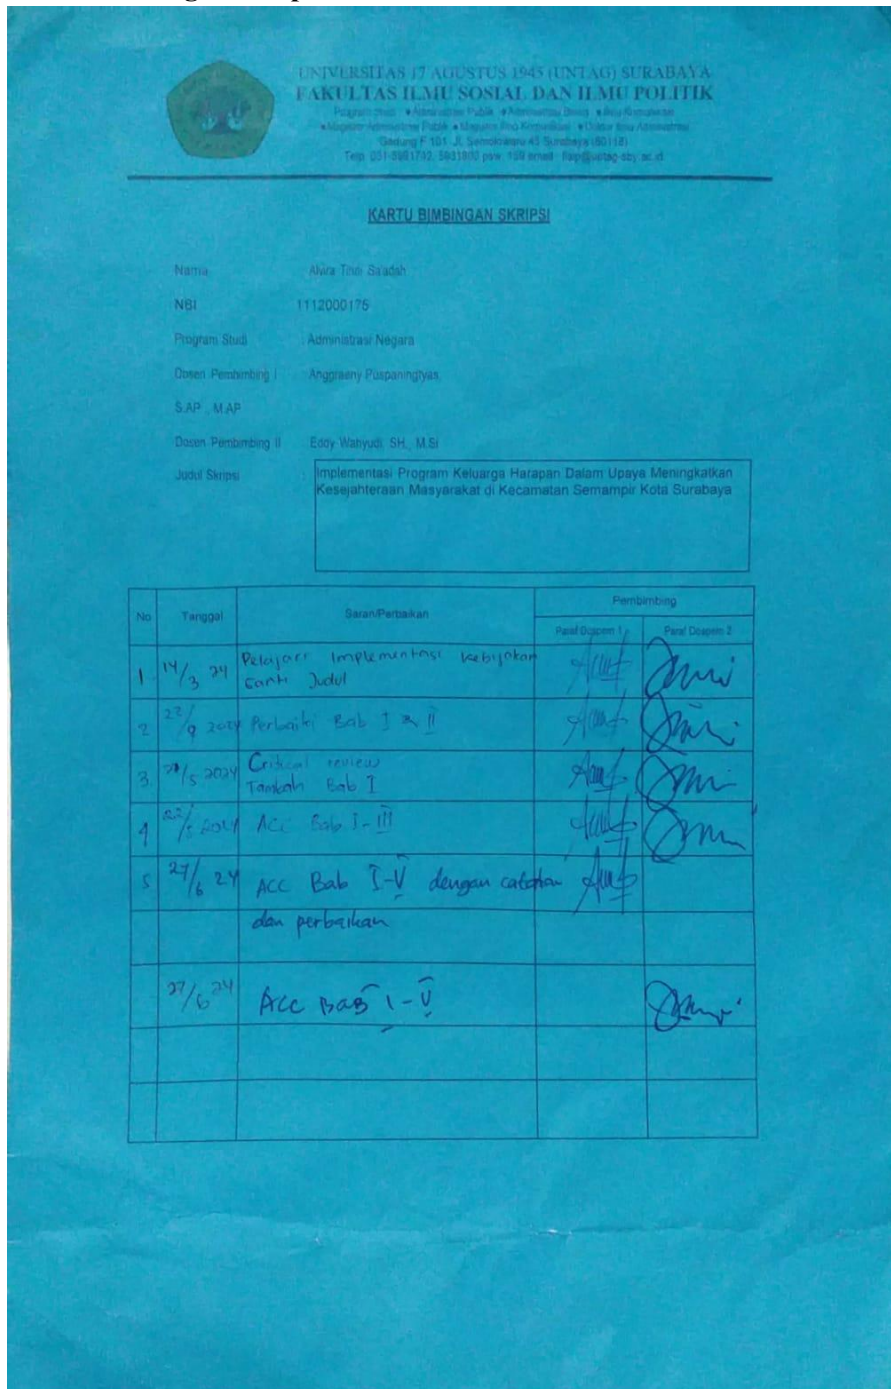 UNIVERSITAS 17 AGUSTUS 1945 (UNTAG) SURABAYA
FAKULTAS ILMU SOSIAL DAN ILMU POLITIK
Program Studi : Administrasi Publik Administrasi Bisnis Ilmu Komunikasi
Magister Administrasi Publik Magister Ilmu Komunikasi Doktor Ilmu Administrasi
Gedung F 101 Jl. Semolowaru 45 Surabaya (60118)
Telp. 031-5931800 psw. 159 email
KARTU BIMBINGAN SKRIPSI
Nama Alvira Sa'adah
NBI 1112000175
Program Studi : Administrasi Negara
Dosen Pembimbing I : Anggraeny Puspaningtyas,
S.AP., M.AP
Dosen Pembimbing II Eddy Wahyudi, SH., M.Si
Judul Skripsi : Implementasi Program Keluarga Harapan Dalam Upaya Meningkatkan
Kesejahteraan Masyarakat di Kecamatan Semampir Kota Surabaya
No Tanggal Saran/Perbaikan Pembimbing
Paraf Dospem 1 Paraf Dospem 2
1. 14/3 24 Pelajari Implementasi kebijakan
Ganti Judul
2 Perbaiki Bab I & II
3. Critical review
Tambah Bab I
4 Acc Bab I - III
5 27/6 24 ACC Bab I-V dengan catatan
dan perbaikan
27/6 24 Acc Bab I - V